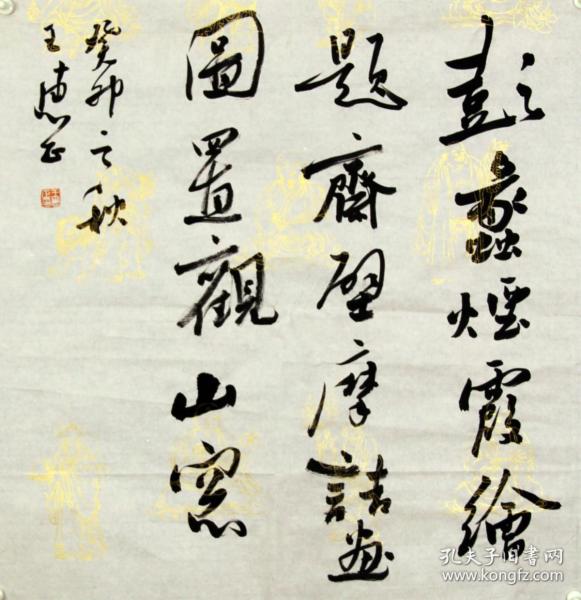 彭蠡煙霞繪
題齋壁摩詰畫
圖置觀山窓
癸卯之秋
王
孔夫子旧书网
www.kongfz.com